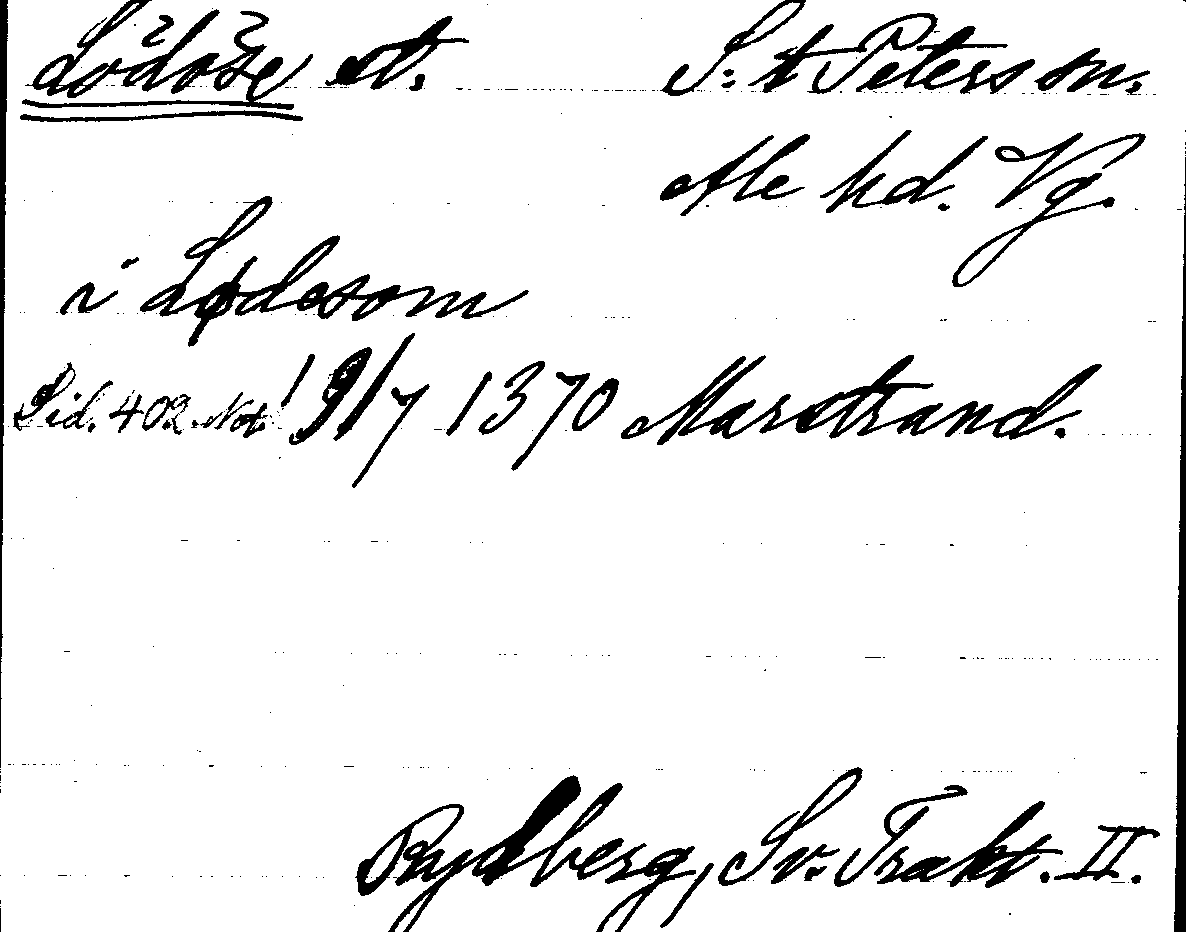 Lödöse st. S:t Peters sn.
Ale hd. Vg.
i Lødesom
Sid. 402. Not. 19/7 1370 Marstrand.
Rydberg, Sv. Trakt. II.